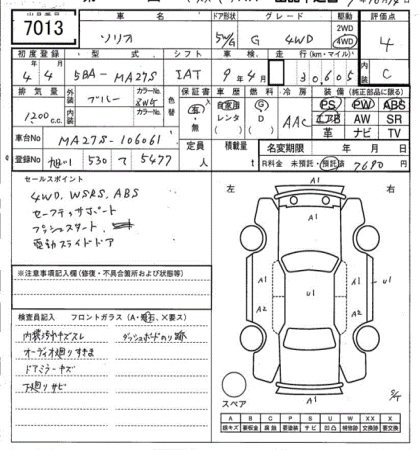 7013
車 名
ソリオ
ドア形状
5W/G
グレード
G 4WD
駆動
2WD
4WD
評価点
4
初度登録
4 年 4 月
型 式
5BA-MA27S
シフト
IAT
車 検
9 年 4 月
走 行 (km・マイル)
30,605
内装
C
排 気 量
1200 c.c.
外装
ブルー
カラーNo.
内装
カラーNo.
色替
保証書
有・無
車 歴
自家用
レンタ
燃料
G
D
冷 房
AAC
装 備 (純正部品に限る)
PS PW ABS
エアB AW SR
革 ナビ TV
車台No
MA27S-106061
登録No
旭川 530 て 5477
定員
人
積載量
t
名変期限 年 月 日
R料金 未預託・預託済 7690 円
セールスポイント
4WD, WSRS, ABS
セーフティサポート
プッシュスタート
電動スライドドア
左
右
A1
A1
A1
A2
A2
U1
A1
S/T
スペア
※注意事項記入欄(修復・不具合箇所および状態等)
検査員記入 フロントガラス (A・飛石、×要ス)
内装汚れキズスレ ダッシュボードのり跡
オーディオ廻りすきま
ドアミラーキズ
下廻りサビ
A B C P S U W X XX
線キズ 要板金 腐蝕 要塗装 サビ 凹凸 補修跡 要交換 交換済